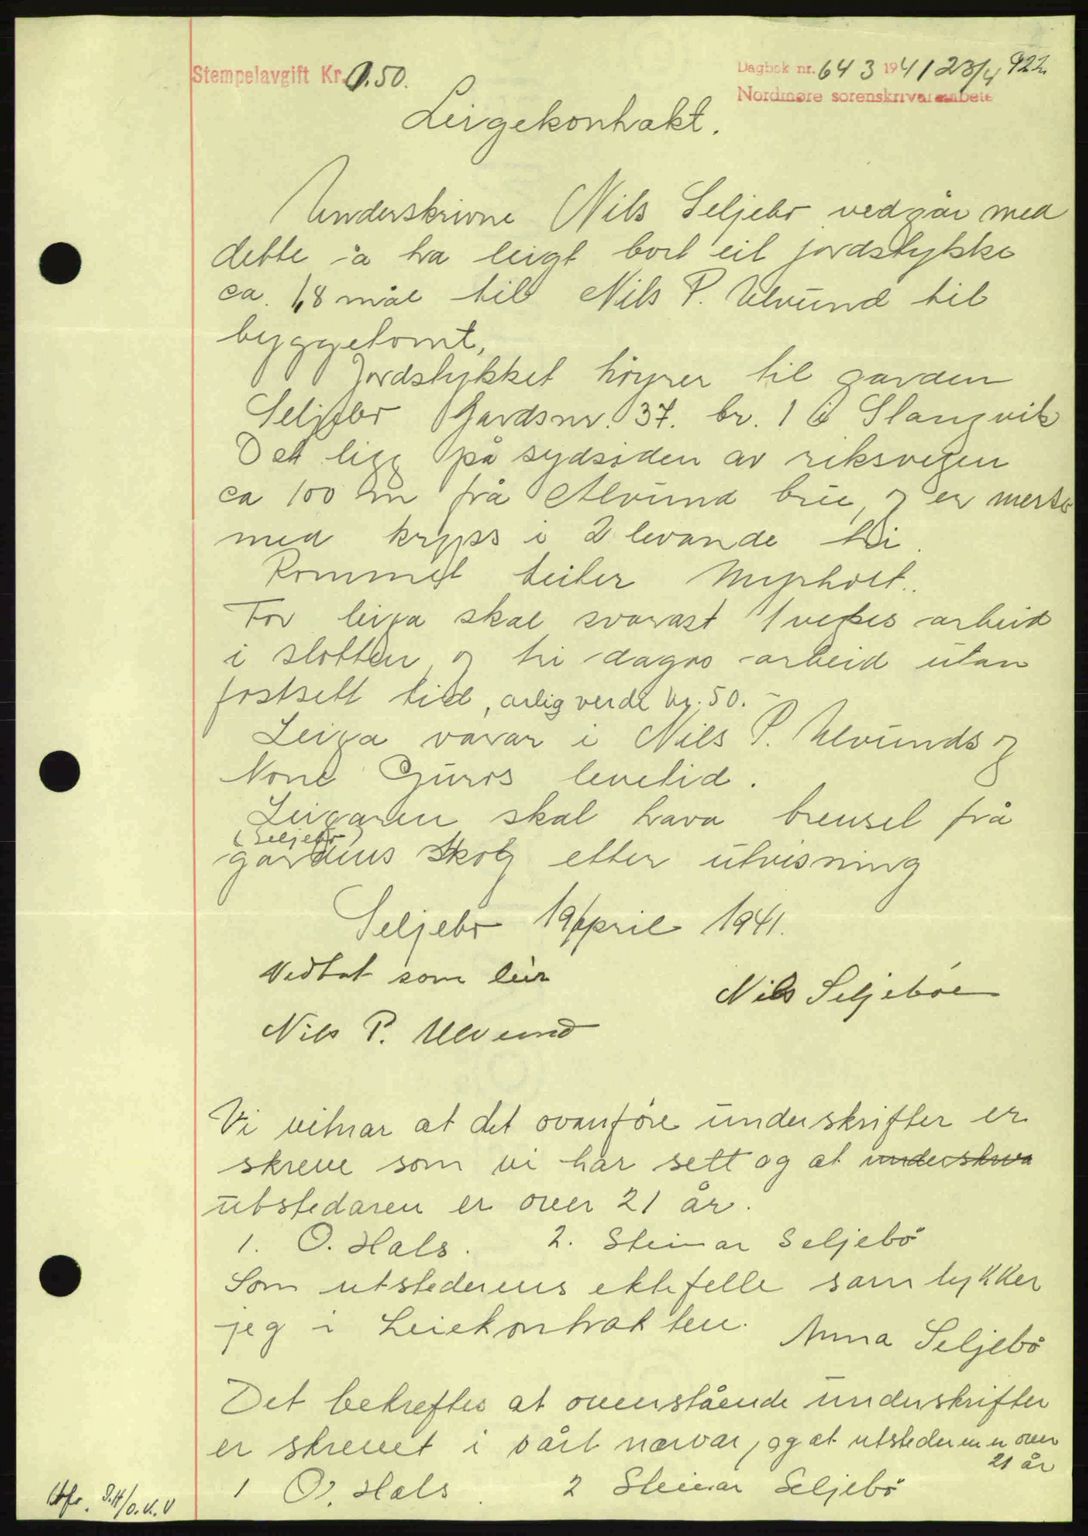 Stempelavgift Kr. 0.50.
Dagbok nr. 643 1941 23/4 922
Nordmøre sorenskrivarembete
Leigekontrakt.
Underskrivne Nils Seljebø vedgår med
dette å ha leigt bort eit jordstykke
ca. 1,8 mål til Nils P. Ulvund til
byggetomt,
Jordstykket höyrer til garden
Seljebø Gardsnr. 37. br. 1 i Stangvik
Det ligg på sydsiden av riksvegen
ca 100 m frå Alvund brü, og er merka
med kryss i 2 levande tri.
Rommet heiter Myrholt.
For leiga skal svarast 1 vekes arbeid
i slotten og tri dagas arbeid utan
fastsett tid, årlig verde kr. 50.-
Leiga varar i Nils P. Ulvunds og
Kone Guros levetid.
Leigaren skal hava brensel frå
(Seljebø)
gardens skog etter ütvisning
Seljebø 19/April 1941.
Vedtat som leir
Nils Seljebøe
Nils P. Ulvund
Vi vitnar at det ovanføre ünderskrifter er
skreve som vi har sett og at underskriva
utstedaren er over 21 år.
1. O. Hals. 2. Steinar Seljebø
Som utstederens ektefelle samtykker
jeg i Leiekontrakten. Anna Seljebø
Det bekreftes at ovenstående ünderskrifter
er skrevet i vårt nærvær, og at utstederen er over
21 år
1 O. Hals. 2 Steinar Seljebø